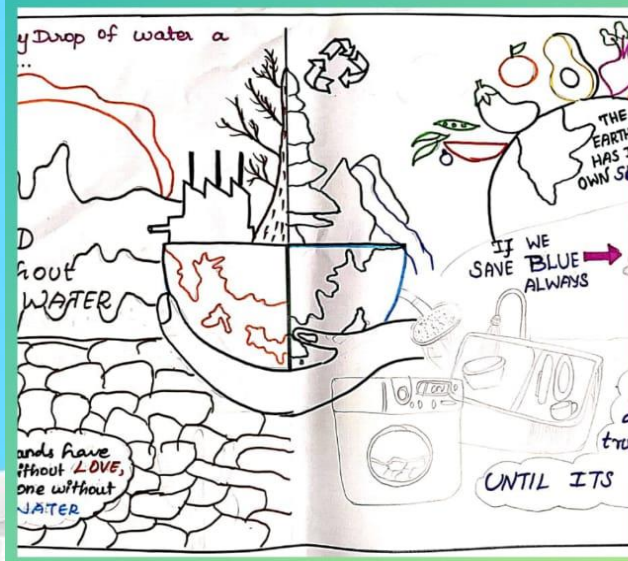 y Drop of water a
...
hout
WATER
ands have
ithout LOVE,
one without
WATER
THE
EARTH
HAS I
OWN S
IF WE
SAVE BLUE
ALWAYS
tru
UNTIL ITS